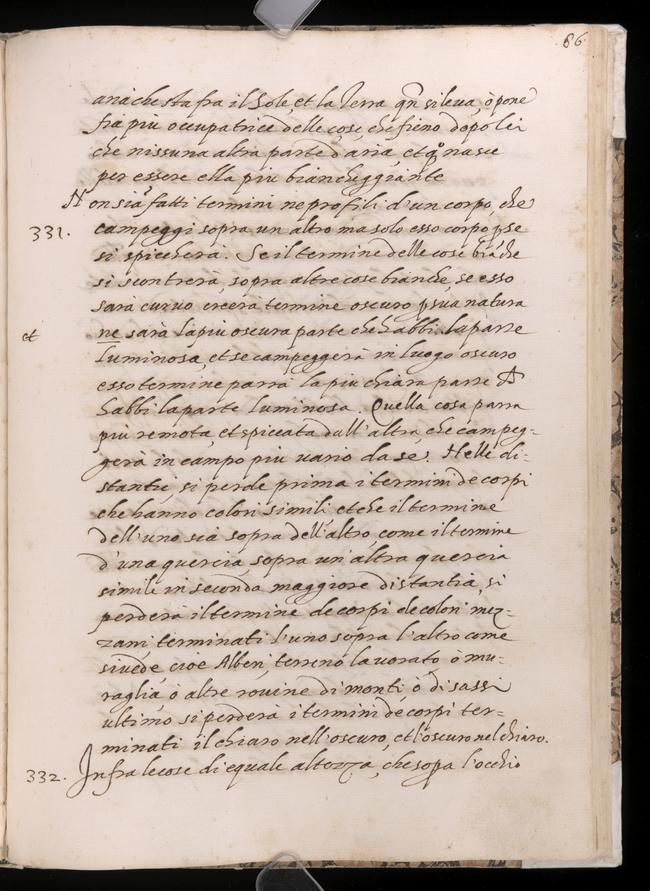 66.
aria che sta fra il Sole, et la Terra qñ si leua, ò pone
fia più occupatrice delle cose, che fieno dopo lei
che nissuna altra parte d'aria, et q.º nasce
per essere ella più biancheggiante
Non sia fatti termini ne profili d'un corpo, che
331. campeggi sopra un altro ma solo esso corpo p se
si spiccherà. Se il termine delle cose biãche
si scontrerà, sopra altre cose bianche, se esso
sarà curuo creerà termine oscuro p sua natura
et ne sarà la più oscura parte che habbi la parte
luminosa, et se campeggerà in luogo oscuro
esso termine parrà la più chiara parte
habbi la parte luminosa. Quella cosa parra
più remota, et spiccata dall'altra, che campeg=
gerà in campo più uario da se. Nelle di=
stantie, si perde prima i termini de corpi
che hanno colori simili et che il termine
dell'uno sia sopra dell'altro, come il termine
d'una quercia, sopra un'altra quercia
simile in seconda maggiore distantia, si
perderà il termine de corpi de colori mez=
zani terminati l'uno sopra l'altro come
si uede, cioè Alberi, terreno lauorato, ò mu=
raglia, ò altre rouine di monti ò di sassi
ultimo si perderà i termini de corpi ter=
minati il chiaro nell'oscuro, et l'oscuro nel chiaro.
332. Infra le cose di equale altezza, che sopra l'occhio